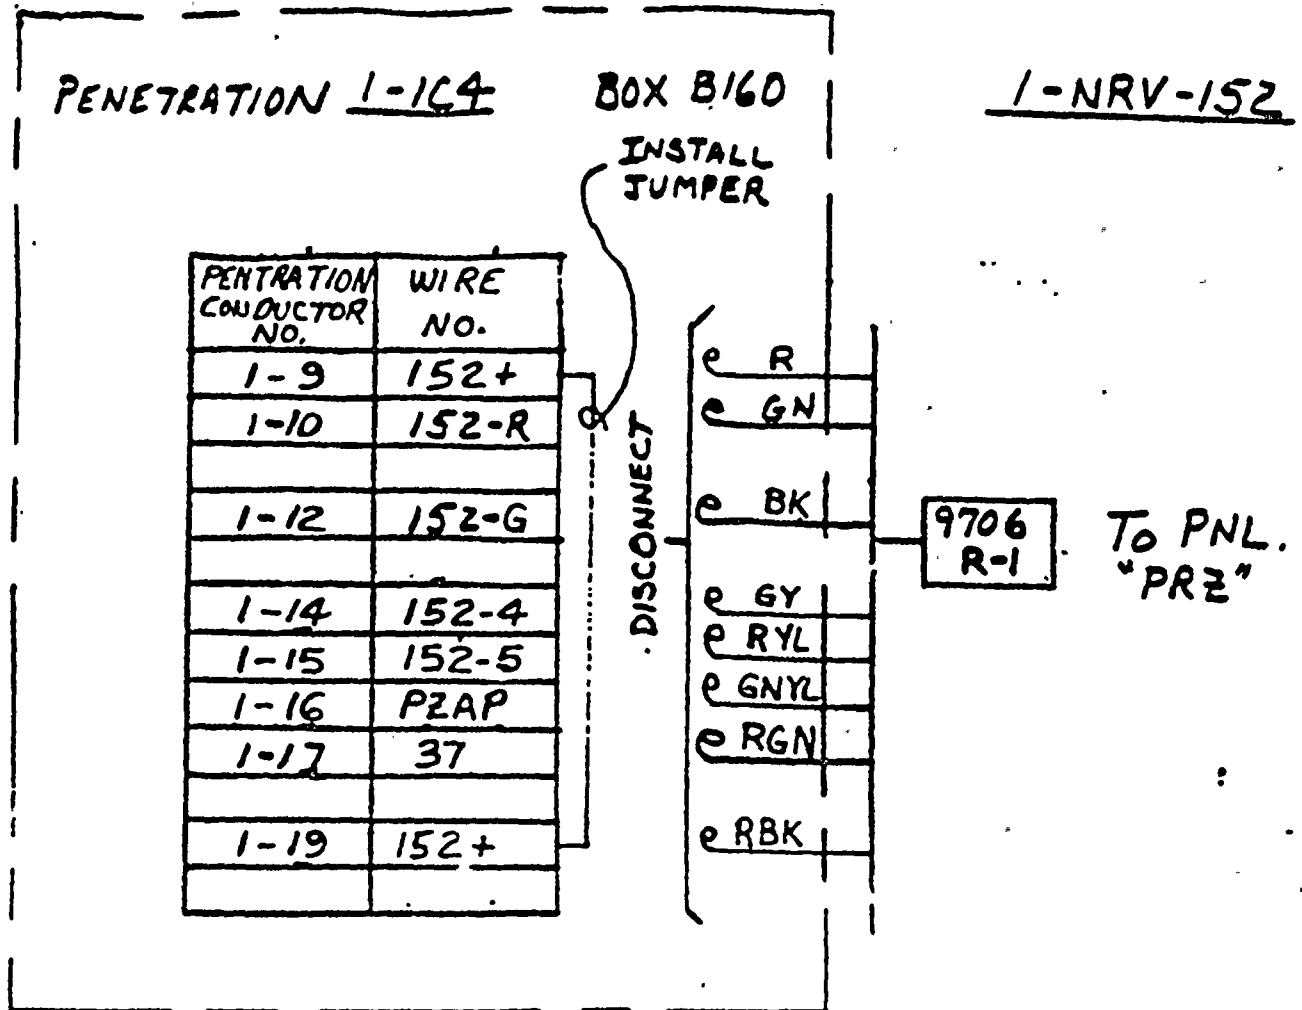 PENETRATION 1-1C4
BOX B160
1-NRV-152
INSTALL
JUMPER
PENTRATION
CONDUCTOR
NO.
WIRE
NO.
1-9 152+
1-10 152-R
1-12 152-G
1-14 152-4
1-15 152-5
1-16 PZAP
1-17 37
1-19 152+
DISCONNECT
R
GN
BK
GY
RYL
GNYL
RGN
RBK
9706
R-1
TO PNL.
"PRZ"